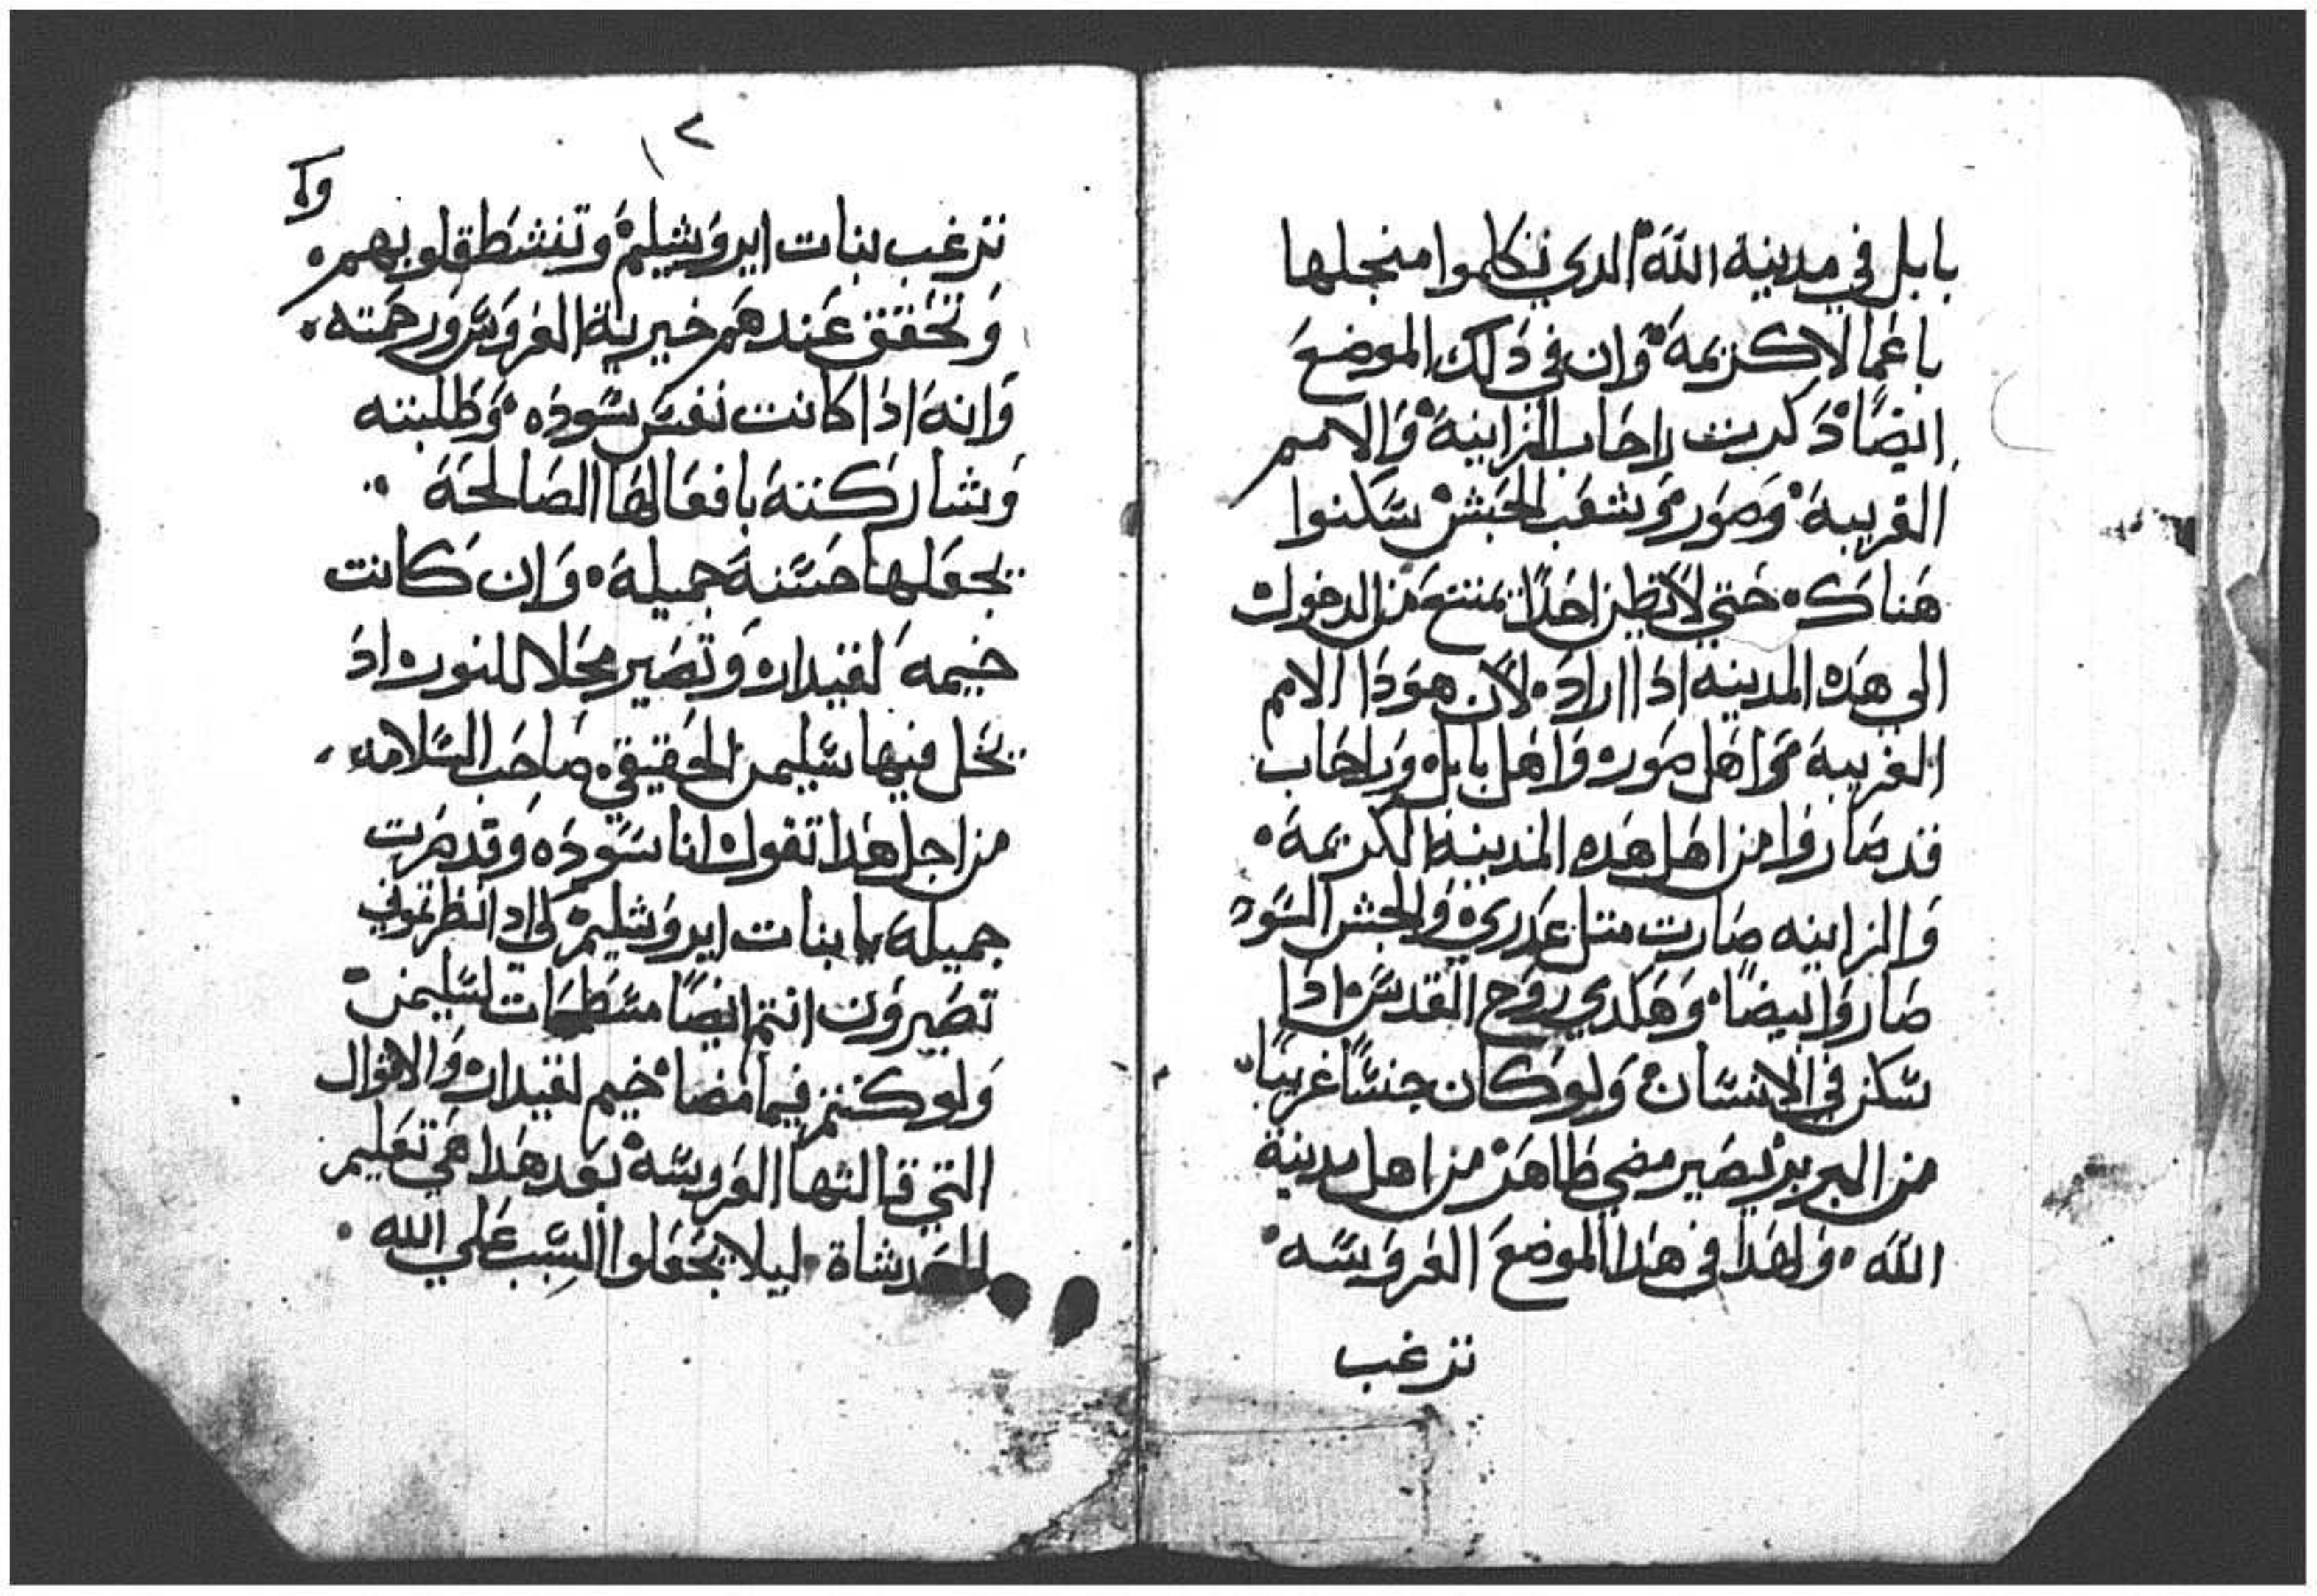 بابل في مدينة الله الدي تكلموا منجلها
باعمالا كريمة وان في دالك الموضع
ايضًا دكرت راحاب الزانية والامم
الغريبة وصور وشعب الحبش سكنوا
هناك حتي لا يظن احدًا يمتنع من الدخول
الي هده المدينه ادا اراد لان هودا الامم
الغريبة هم اهل صور واهل بابل وراحاب
قد صاروا من اهل هده المدينة الكريمة
والزانيه صارت متل عدري والحبش السود
صاروا بيضًا وهكدي روح القدس ادا
سكن في الانسان ولو كان جنسًا غريبًا
من البرير يصير مضي طاهر من اهل مدينة
الله ولهدا في هدا الموضع العروسه
ترغب
١٢
وا
ترغب بنات ايروشليم وتنشط قلوبهم
وتحقق عندهم خيرية العروس ورحمته
وانه ادا كانت نفس سوده وطلبته
وشاركته بافعالها الصالحة
يجعلها حسنة جميلة وان كانت
خيمة لقيدار وتصير محلا للنور اد
يحل فيها سليمن الحقيقي صاحب السلامه
من اجل هدا تقول انا سوده وقد صرت
جميلة يا بنات ايروشليم لي اد انظرتموني
تصيرون انتم ايضًا لسليمن
ولو كنتم فيما مضا خيم لقيدار والاقوال
التي قالتها العروسه بعد هدا هي تعليم
ليلا يجعلوا السبب علي الله